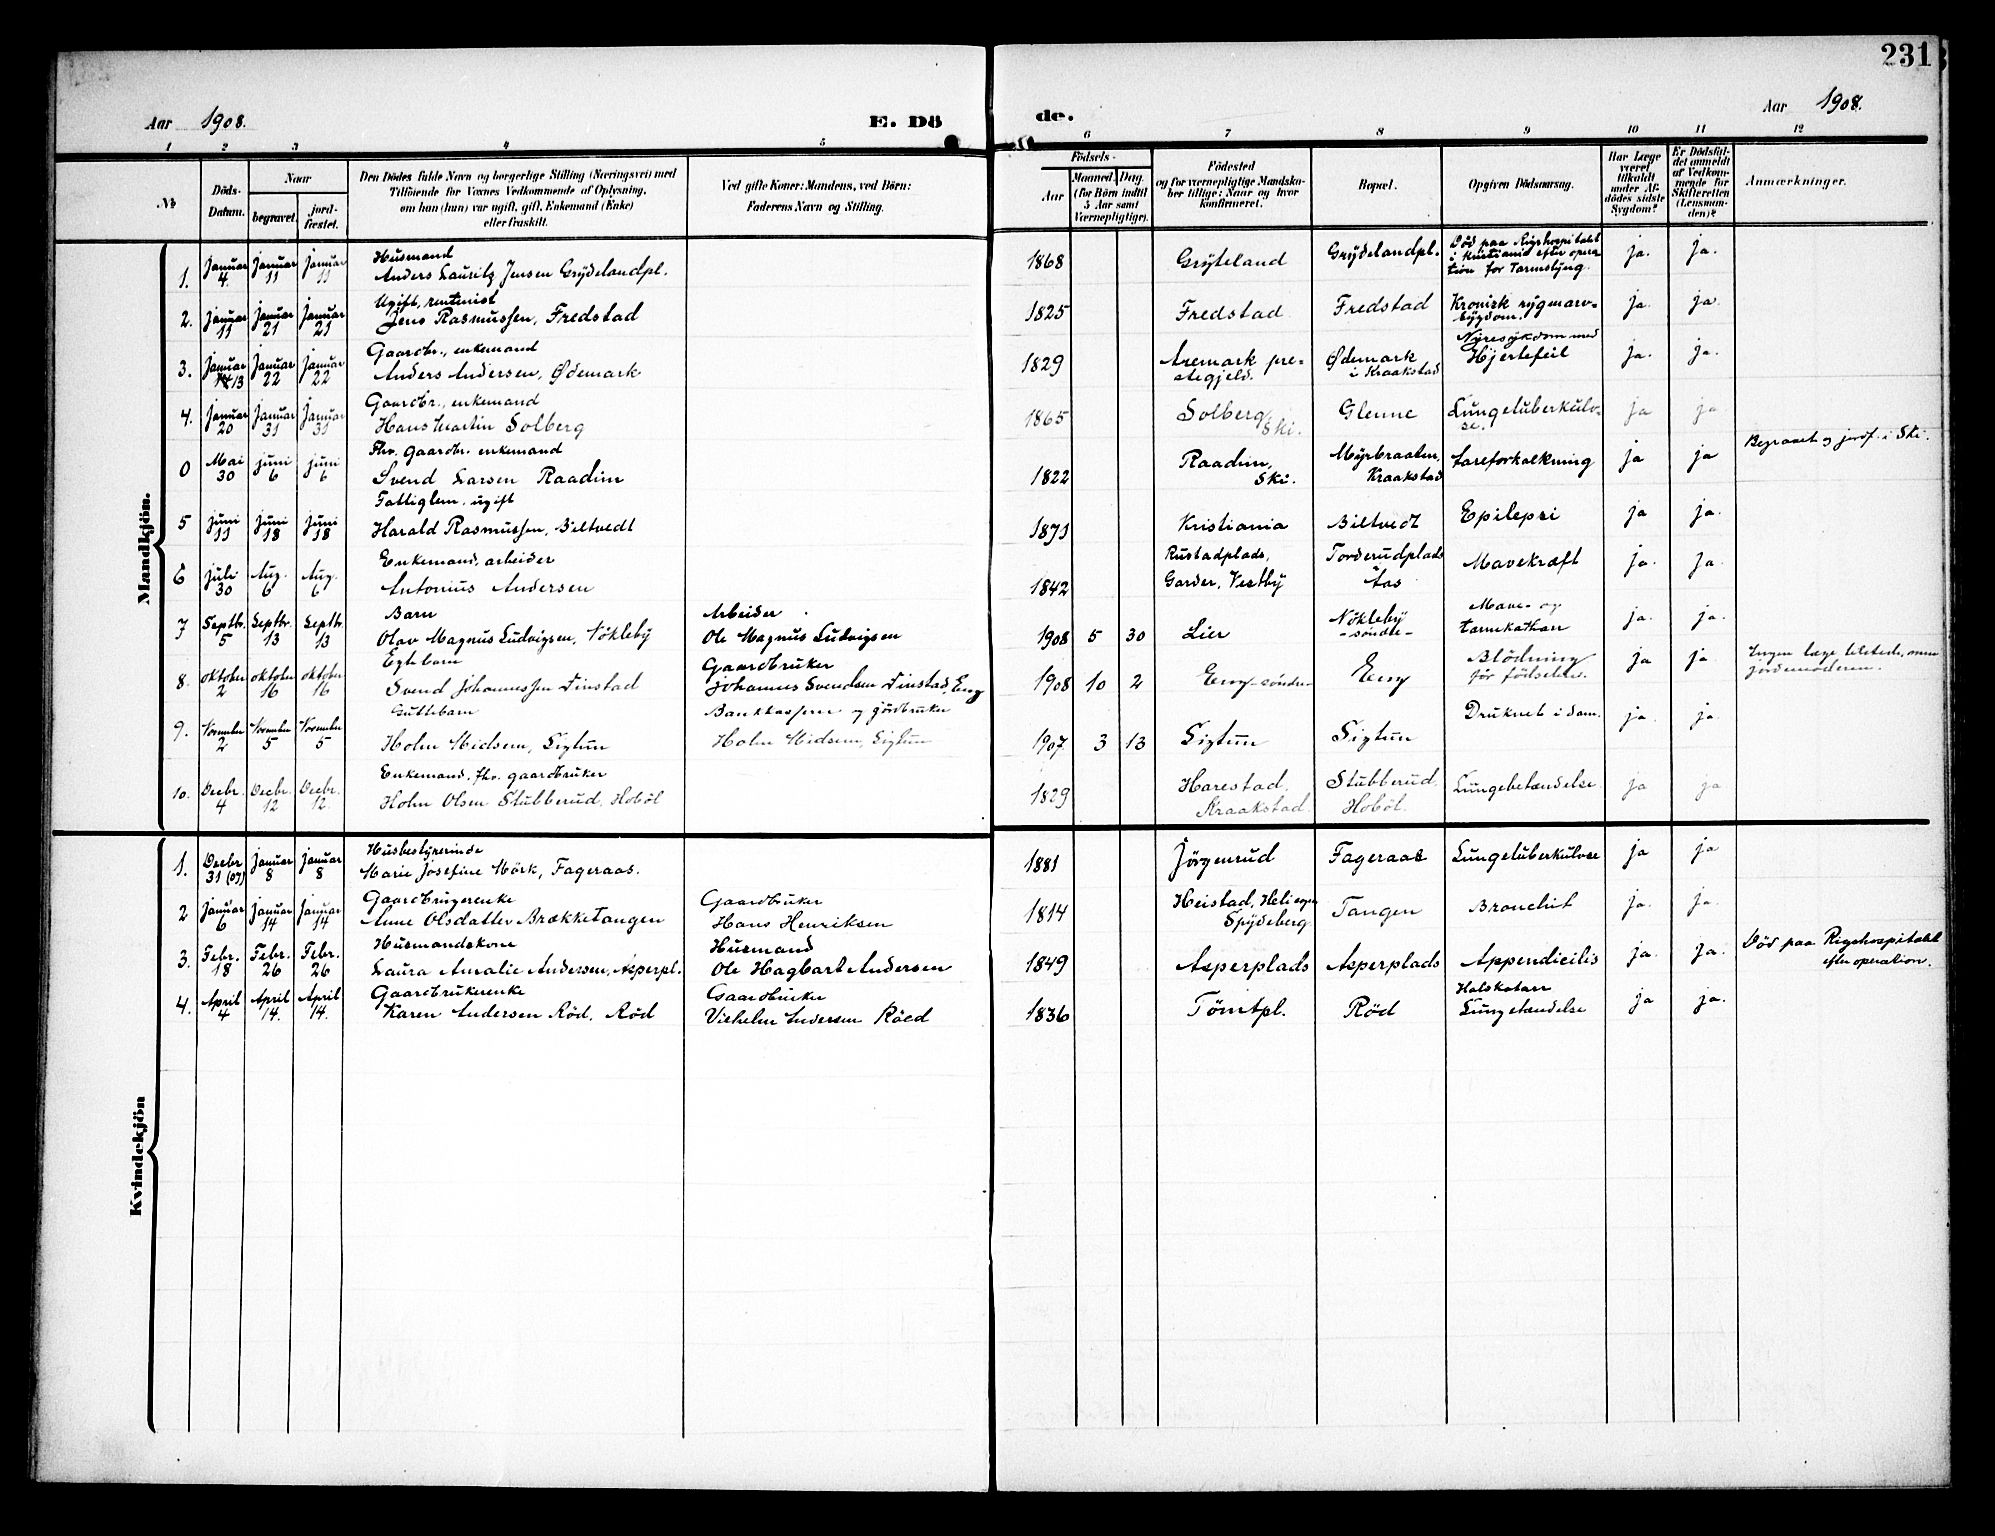 231
Aar 1908.
E. Dö
de.
Aar 1908.
1 2 3 4 5 6 7 8 9 10 11 12
№
Döds-Datum.
Naar
begravet.
jord-fæstet.
Den Dödes fulde Navn og borgerlige Stilling (Næringsvei) med
Tilföiende for Voxnes Vedkommende af Oplysning,
om han (hun) var ugift, gift, Enkemand (Enke)
eller fraskilt.
Ved gifte Koner: Mandens, ved Börn:
Faderens Navn og Stilling.
Födsels-
Aar
Maaned. Dag.
(for Börn indtil
5 Aar samt
Værnepligtige).
Födested
og for værnepligtige Mandska-
ber tillige: Naar og hvor
konfirmeret.
Bopæl.
Opgiven Dödsaarsag.
Har Læge
været
tilkaldt
under Af-
dödes sidste
Sygdom?
Er Dödsfal-
det anmeldt
af Vedkom-
mende for
Skifteretten
(Lensman-
den)?
Anmærkninger.
Mandkjön.
1. Januar 4 Januar 11 Januar 11 Husmand
Anders Lauritz Jensen Grydelandpl. 1868 Gryteland Grydelandpl. Död paa Rigshospitalet
i Kristiania efter opera-
tion for Tarmslyng. ja. ja.
2. Januar 11 Januar 21 Januar 21 Ugift, rentenist
Jens Rasmussen, Fredstad 1825 Fredstad Fredstad Kronisk rygmarv-
sygdom. ja. ja.
3. Januar 13 Januar 22 Januar 22 Gaardbr., enkemand
Anders Andersen, Ødemark 1829 Aremark pre-
stegjeld. Ødemark
i Kraakstad Nyresykdom med
Hjertefeil ja. ja.
4. Januar 20 Januar 31 Januar 31 Gaardbr., enkemand
Hans Martin Solberg 1865 Solberg
Ski. Glenne Lungetuberkulo-
se. ja ja
0 Mai 30 juni 6 juni 6 Fhv. Gaardbr. enkemand
Svend Larsen Raadim 1822 Raadim,
Ski. Myrbraaten,
Kraakstad Aareforkalkning ja ja Begravet og jordf. i Ski.
5 Juni 11 Juni 18 Juni 18 Fattiglem, ugift
Harald Rasmussen, Biltvedt 1871 Kristiania Biltvedt Epilepsi ja ja.
6 Juli 30 Aug. 6 Aug. 6 Enkemand, arbeider
Antonius Andersen 1842 Rustadplads,
Garder, Vestby Torderudplads
Aas Mavekræft ja. ja.
7 Septb. 5 Septbr. 13 Septbr. 13 Barn
Olav Magnus Ludvigsen, Nökleby Arbeider
Ole Magnus Ludvigsen 1908 5 30 Lier Nökleby
-söndre- Mave- og
tarmkatharr ja. ja.
8. oktober 2 oktober 16 oktober 16 Egtebarn
Svend Johannessen Finstad Gaardbruker
Johannes Svendsen Finstad, Eng 1908 10 2 Eng-söndre- Eng Blödning
før födselen. ja ja. Ingen læge tilstede, men
jordemoderen.
9. November 2 November 5 November 5 Guttebarn
Holm Midsem, Sigtun Bankkasserer og jordbruker
Holm Midsem, Sigtun 1907 3 13 Sigtun Sigtun Druknet i dam. ja. ja.
10. Decbr. 4 Decbr. 12 Decbr. 12 Enkemand, fhv. gaardbruker
Holm Olsen Stubberud, Hoböl 1829 Harestad,
Kraakstad Stubberud,
Hoböl. Lungebetændelse ja ja
Kvindekjön
1. Decbr 31 (07) Januar 8 Januar 8 Husbestyrerinde
Marie Josefine Mörk, Fageraas. 1881 Jörgenrud Fageraas Lungetuberkulose ja ja
2 Januar 6 Januar 14 Januar 14 Gaardbrugerenke
Anne Olsdatter Brækketangen Gaardbruker
Hans Henriksen 1814 Heistad,
Spydeberg Tangen Bronchit ja. ja.
3. Febr. 18 Febr. 26 Febr. 26 Husmandskone
Laura Amalie Andersen, Asperpl. Husmand
Ole Hagbart Andersen 1849 Asperplads Asperplads Appendicitis ja. ja. Död paa Rigshospitalet
efter operation.
4. April 4 April 14. April 14. Gaardbrukerenke
Karen Andersen Röd, Röd Gaardbruker
Vilhelm Andersen Röed 1836 Tömtpl. Röd Halskatarr
Lungetændelse ja ja.